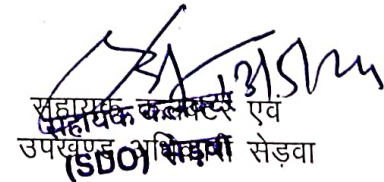 सहायक कलक्टर एवं
उपखण्ड अधिकारी सेड़वा
सहायक कलक्टर
(SDO) सेड़वा